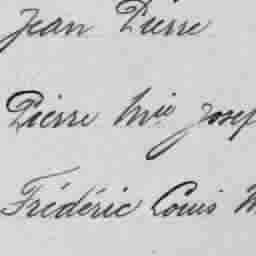 Jean Pierre
Pierre Mie Josep
Frédéric Louis M